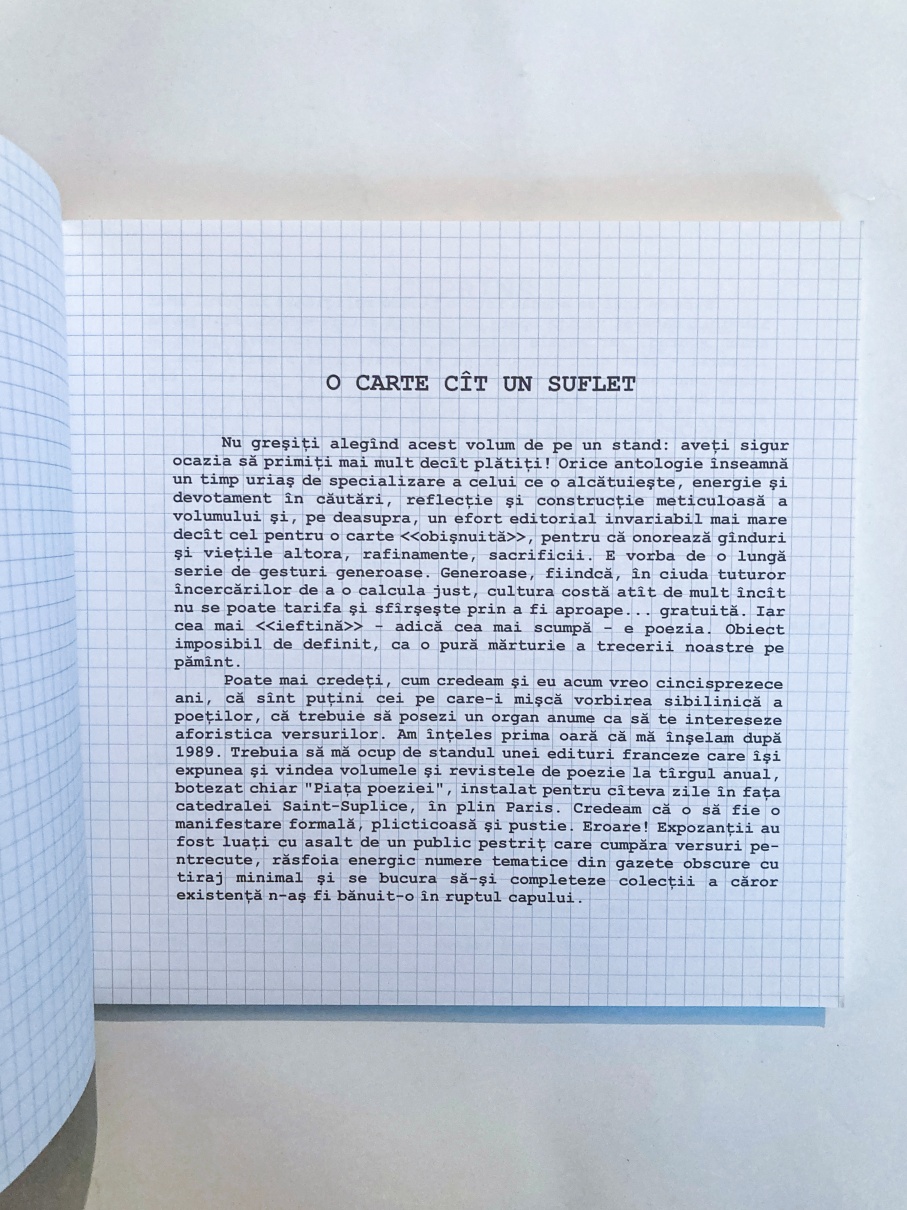 O CARTE CÎT UN SUFLET
Nu greşiţi alegînd acest volum de pe un stand: aveţi sigur
ocazia să primiţi mai mult decît plătiţi! Orice antologie înseamnă
un timp uriaş de specializare a celui ce o alcătuieşte, energie şi
devotament în căutări, reflecţie şi construcţie meticuloasă a
volumului şi, pe deasupra, un efort editorial invariabil mai mare
decît cel pentru o carte <<obişnuită>>, pentru că onorează gînduri
şi vieţile altora, rafinamente, sacrificii. E vorba de o lungă
serie de gesturi generoase. Generoase, fiindcă, în ciuda tuturor
încercărilor de a o calcula just, cultura costă atît de mult încît
nu se poate tarifa şi sfîrşeşte prin a fi aproape... gratuită. Iar
cea mai <<ieftină>> – adică cea mai scumpă – e poezia. Obiect
imposibil de definit, ca o pură mărturie a trecerii noastre pe
pămînt.
Poate mai credeţi, cum credeam şi eu acum vreo cincisprezece
ani, că sînt puţini cei pe care-i mişcă vorbirea sibilinică a
poeţilor, că trebuie să posezi un organ anume ca să te intereseze
aforistica versurilor. Am înţeles prima oară că mă înşelam după
1989. Trebuia să mă ocup de standul unei edituri franceze care îşi
expunea şi vindea volumele şi revistele de poezie la tîrgul anual,
botezat chiar "Piaţa poeziei", instalat pentru cîteva zile în faţa
catedralei Saint-Suplice, în plin Paris. Credeam că o să fie o
manifestare formală, plicticoasă şi pustie. Eroare! Expozanţii au
fost luaţi cu asalt de un public pestriţ care cumpăra versuri pe-
ntrecute, răsfoia energic numere tematice din gazete obscure cu
tiraj minimal şi se bucura să-şi completeze colecţii a căror
existenţă n-aş fi bănuit-o în ruptul capului.